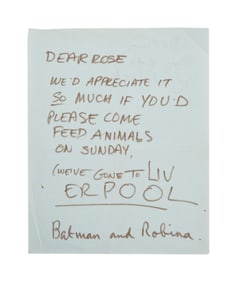 DEAR ROSE
WE'D APPRECIATE IT
SO MUCH IF YOU'D
PLEASE COME
FEED ANIMALS
ON SUNDAY,
(WE'VE GONE TO LIV
ERPOOL
Batman and Robina.